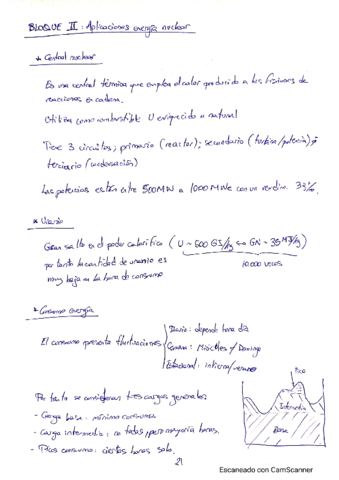 BLOQUE II: Aplicaciones energía nuclear
* Central nuclear
Es una central térmica que emplea el calor producido a las fisiones de
reacciones en cadena.
Utiliza como combustible U enriquecido o natural
Posee 3 circuitos; primario (reactor); secundario (turbina/potencia) y
terciario (condensación)
Las potencias están entre 500MW a 1000 MWe con un rendim. 33%.
* Uranio
Gran salto en el poder calorífico (U ~ 500 GJ/kg ↔ GN ~ 35 MJ/kg)
por tanto la cantidad de uranio es
10.000 veces
muy baja en la hora de consumo
* Consumo energía
Diario: depende hora día
El consumo presenta fluctuaciones
Semana: Miércoles y Domingo
Estacional: invierno/verano
Pico
Intermedia
Base
Por tanto se consideran tres cargas generales
- Carga base: mínimo consumo
- Carga intermedia: no todas, pero mayoría horas.
- Picos consumo: ciertas horas solo.
21
Escaneado con CamScanner